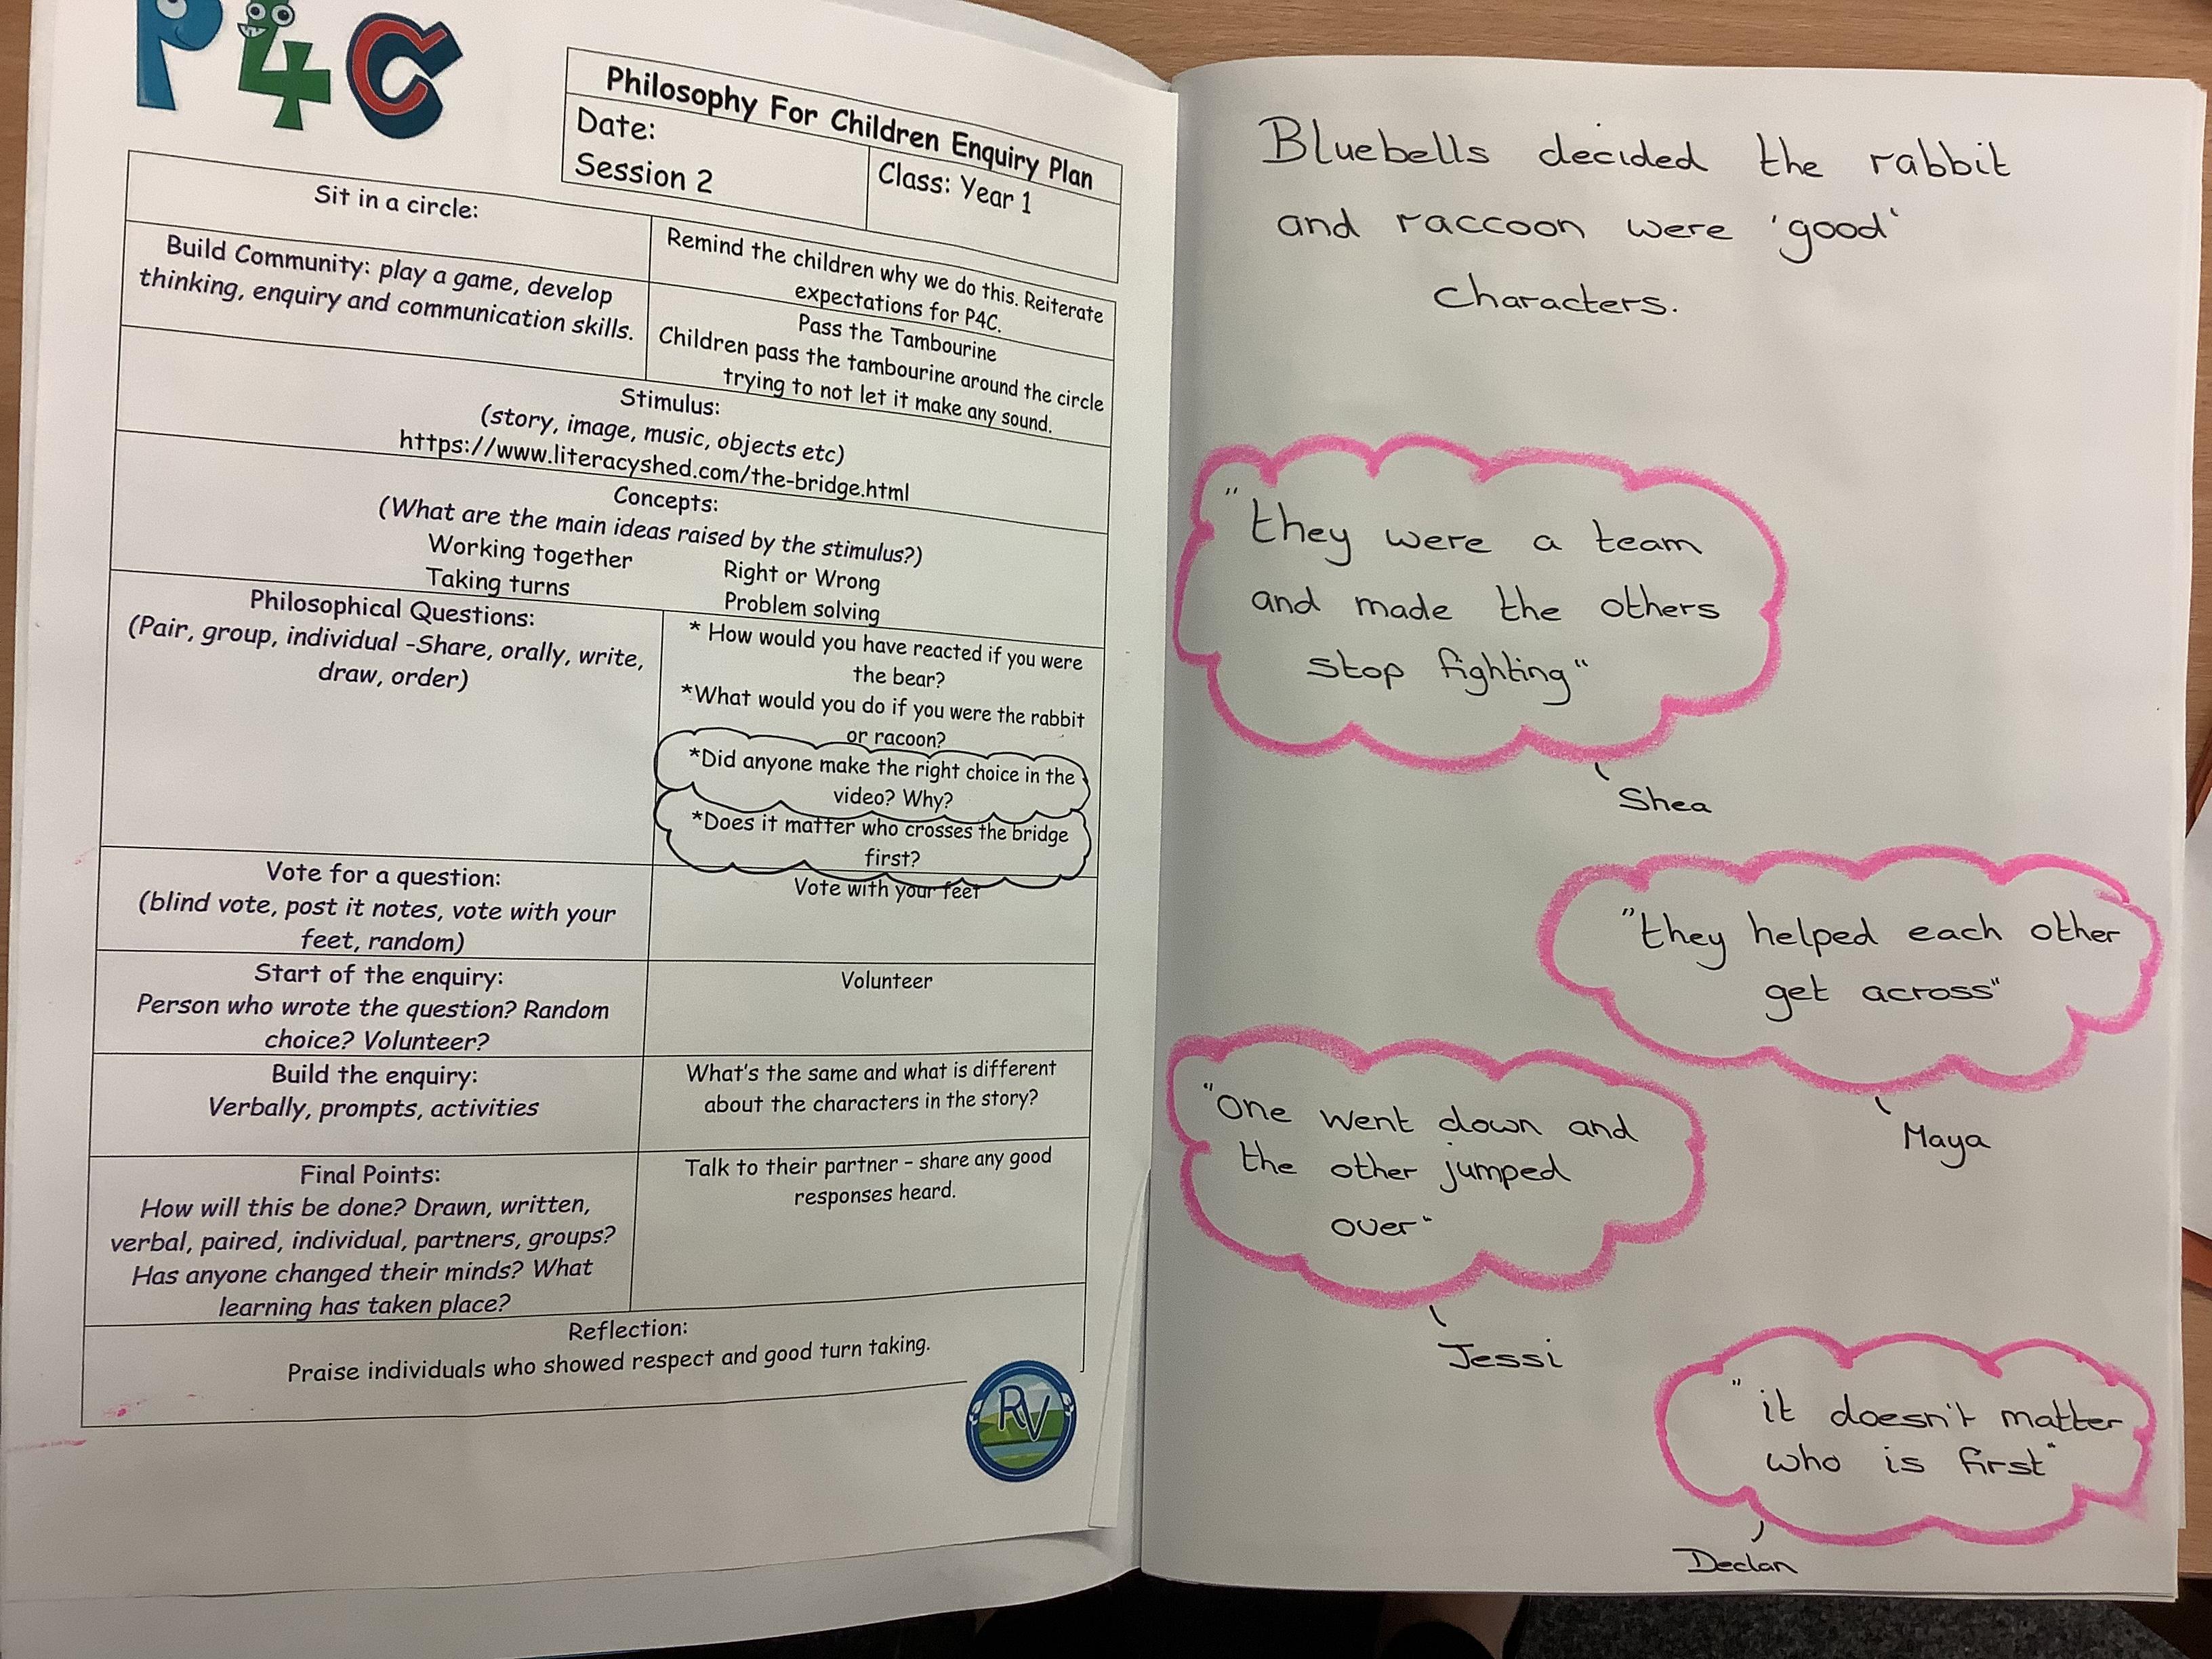 P4C
Philosophy For Children Enquiry Plan
Date:
Session 2
Class: Year 1
Sit in a circle:
Remind the children why we do this. Reiterate
expectations for P4C.
Build Community: play a game, develop
thinking, enquiry and communication skills.
Pass the Tambourine
Children pass the tambourine around the circle
trying to not let it make any sound.
Stimulus:
(story, image, music, objects etc)
https://www.literacyshed.com/the-bridge.html
Concepts:
(What are the main ideas raised by the stimulus?)
Working together
Right or Wrong
Taking turns
Problem solving
Philosophical Questions:
(Pair, group, individual -Share, orally, write,
draw, order)
* How would you have reacted if you were
the bear?
*What would you do if you were the rabbit
or racoon?
*Did anyone make the right choice in the
video? Why?
*Does it matter who crosses the bridge
first?
Vote for a question:
(blind vote, post it notes, vote with your
feet, random)
Vote with your feet
Start of the enquiry:
Person who wrote the question? Random
choice? Volunteer?
Volunteer
Build the enquiry:
Verbally, prompts, activities
What's the same and what is different
about the characters in the story?
Final Points:
How will this be done? Drawn, written,
verbal, paired, individual, partners, groups?
Has anyone changed their minds? What
learning has taken place?
Talk to their partner – share any good
responses heard.
Reflection:
Praise individuals who showed respect and good turn taking.
RV
Bluebells decided the rabbit
and raccoon were 'good'
characters.
"they were a team
and made the others
stop fighting"
Shea
"they helped each other
get across"
Maya
"one went down and
the other jumped
over"
Jessi
"it doesn't matter
who is first"
Declan